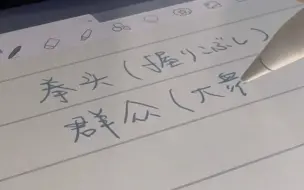 拳头(握りこぶし)
群众(大衆